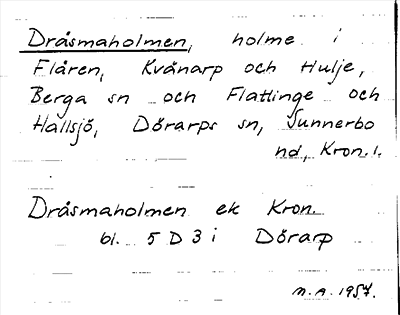 Dråsmaholmen, holme i
Flåren, Kvånarp och Hulje,
Berga sn och Flattinge och
Hallsjö, Dörarps sn, Sunnerbo
hd, Kron. l.
Dråsmaholmen ek Kron.
bl. 5 D 3 i Dörarp
M.A. 1957.